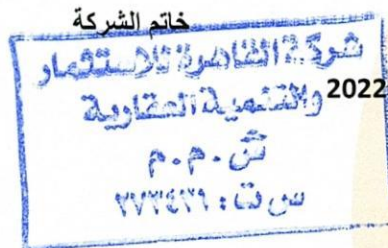 خاتم الشركة
شركة القاهرة للاستثمار
2022
والتنمية العقارية
ش.م.م
س ت: ٢٧٣٤٢٦